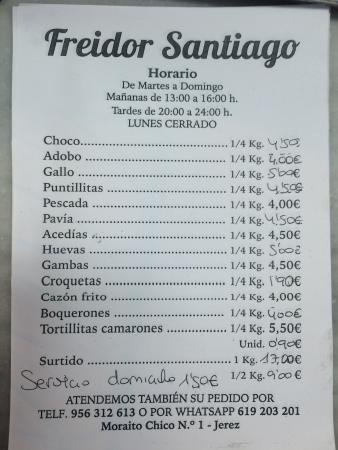 Freidor Santiago
Horario
De Martes a Domingo
Mañanas de 13:00 a 16:00 h.
Tardes de 20:00 a 24:00 h.
LUNES CERRADO
Choco........................................ 1/4 Kg. 4,50€
Adobo ....................................... 1/4 Kg. 4,00€
Gallo ......................................... 1/4 Kg. 5,00€
Puntillitas ................................. 1/4 Kg. 4,50€
Pescada ..................................... 1/4 Kg. 4,00€
Pavía ......................................... 1/4 Kg. 4,50€
Acedías ..................................... 1/4 Kg. 4,50€
Huevas ...................................... 1/4 Kg. 5,00€
Gambas ..................................... 1/4 Kg. 4,50€
Croquetas ................................. 1/4 Kg. 1,90€
Cazón frito ............................... 1/4 Kg. 4,00€
Boquerones .............................. 1/4 Kg. 4,00€
Tortillitas camarones ............... 1/4 Kg. 5,50€
Unid. 0,90€
Surtido ...................................... 1 Kg. 17,00€
Servicio domicilio 1,50€ 1/2 Kg. 9,00€
ATENDEMOS TAMBIÉN SU PEDIDO POR
TELF. 956 312 613 O POR WHATSAPP 619 203 201
Moraito Chico N.º 1 - Jerez